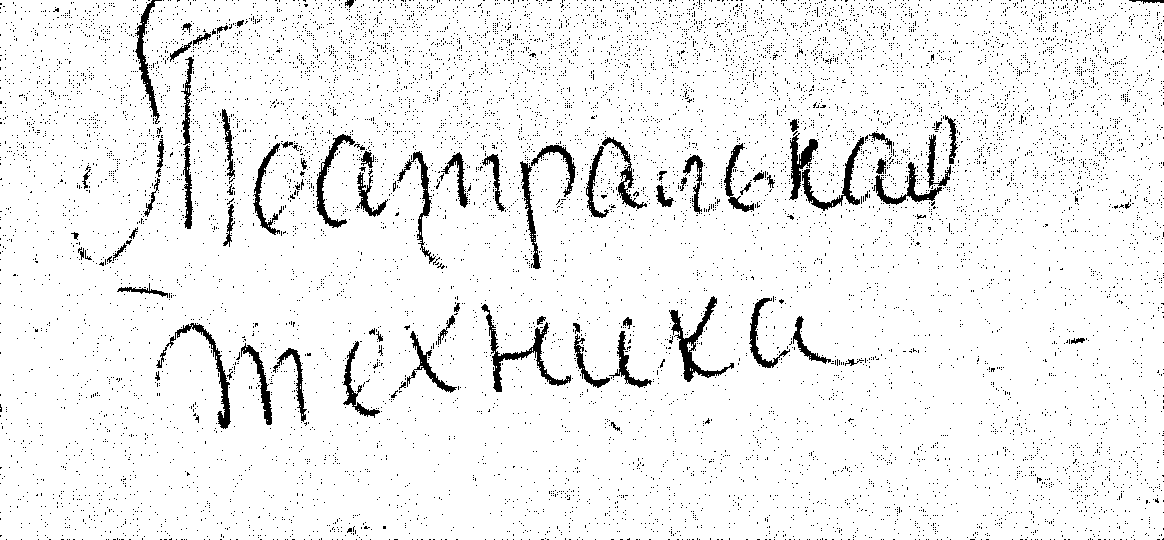 Театралькая
техника